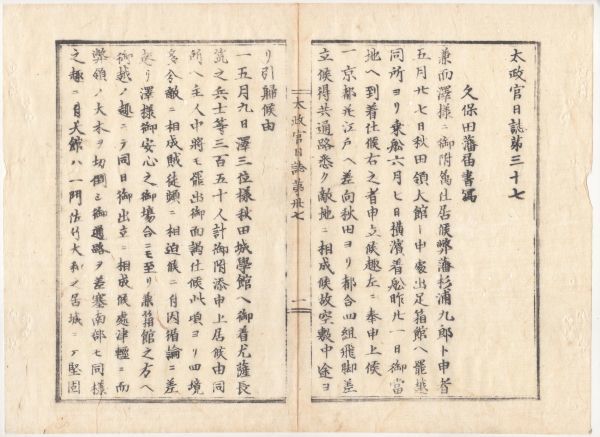 太政官日誌第三十七
久保田藩届書寫
兼而澤様ニ御附属仕居候弊藩杉浦九郎ト申者
五月廿七日秋田領大館ト申處出足箱館ヘ罷越
同所ヨリ乗船六月七日横濱着船昨廿一日御當
地ヘ到着仕候右之者申立候趣左ニ奉申上候
一京都并江戸ヘ差向秋田ヨリ都合四組飛脚差
立候得共通路悉ク敵地ニ相成候故空敷中途ヨ
太政官日誌第卅七
一
リ引歸候由
一五月九日澤三位様秋田城學館ヘ御着尤薩長
筑之兵士等三百五十人計御附添申上居候由同
所ヘ主人中將モ罷出御面謁仕候此頃ヨリ四境
多分敵ニ相成賊徒頻ニ相迫候ニ付因循論ニ差
迷リ澤様御安心之御場合ニモ至リ兼箱館之方ヘ
御越ノ趣ニテ同日御出立ニ相成候處津輕ニ而
弊領ノ大木ヲ切倒シ御通路ヲ差塞南部モ同様
之趣ニ付大館ハ一門佐竹大和之居城ニテ堅固